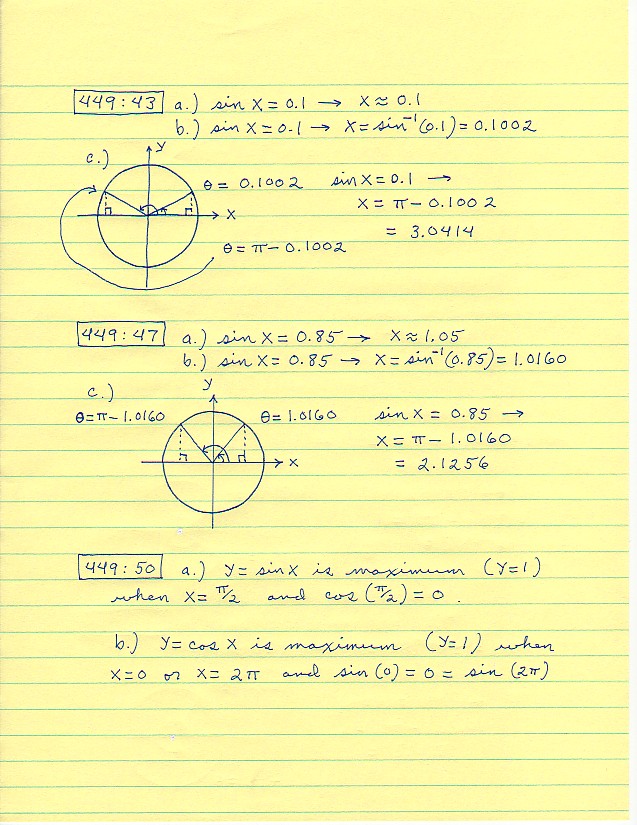 449:43 a.) sin x = 0.1 → x ≈ 0.1
b.) sin x = 0.1 → x = sin⁻¹(0.1) = 0.1002
c.) y
θ = 0.1002 sin x = 0.1 →
x
x = π - 0.1002
= 3.0414
θ = π - 0.1002
449:47 a.) sin x = 0.85 → x ≈ 1.05
b.) sin x = 0.85 → x = sin⁻¹(0.85) = 1.0160
c.) y
θ = π - 1.0160 θ = 1.0160 sin x = 0.85 →
x = π - 1.0160
x = 2.1256
449:50 a.) y = sin x is maximum (y=1)
when x = π/2 and cos(π/2) = 0.
b.) y = cos x is maximum (y=1) when
x = 0 or x = 2π and sin(0) = 0 = sin(2π)